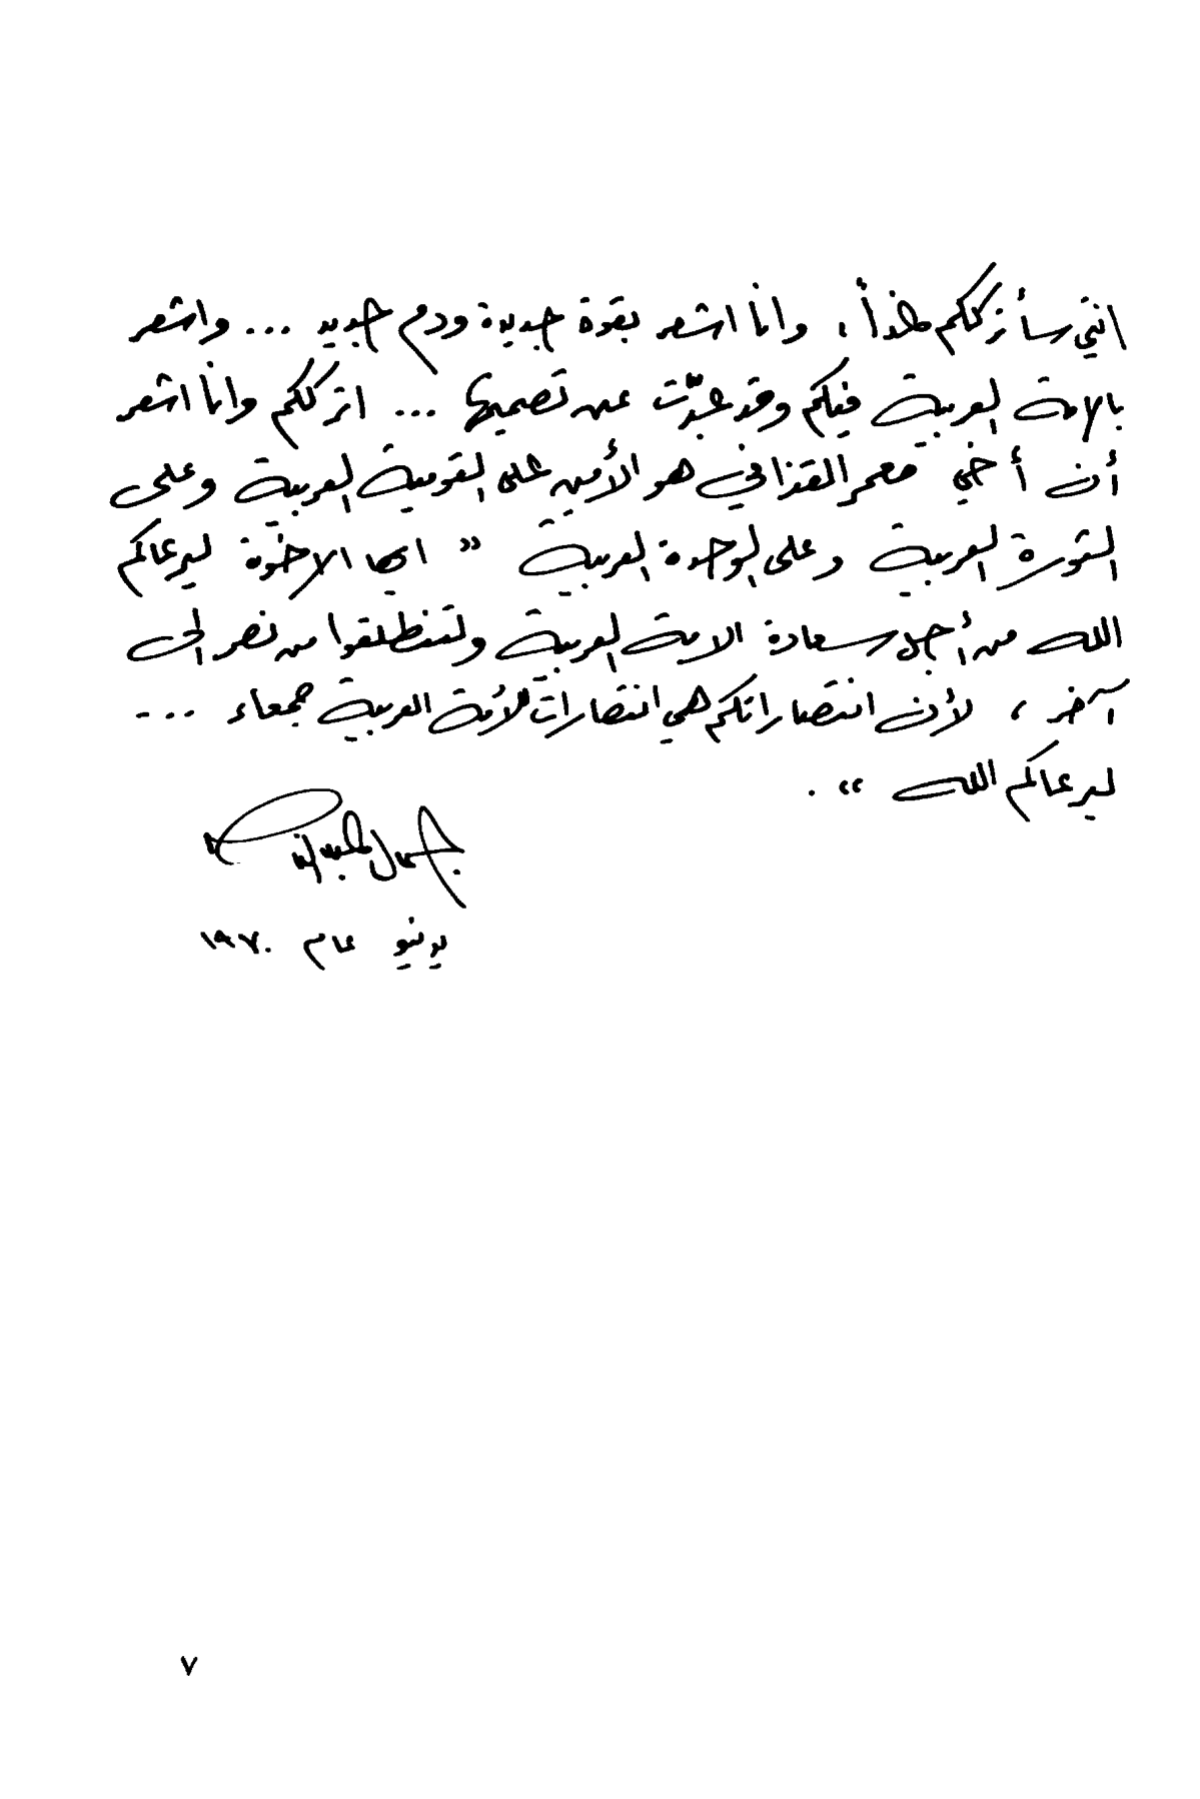 انني سأترككم غداً، وانا اشعر بقوة جديدة ودم جديد ... واشعر
بالامة العربية فيكم وقد عبّرت عن تصميمها ... اترككم وانا اشعر
أن أخي معمر القذافي هو الأمين على القومية العربية وعلى
الثورة العربية وعلى الوحدة العربية " ايها الاخوة ليرعاكم
الله من أجل سعادة الامة العربية ولتنطلقوا من نصر الى
آخر ، لأن انتصاراتكم هي انتصارات للأمة العربية جمعاء ...
ليرعاكم الله " .
جمال عبد الناصر
يونيو عام ١٩٧٠
٧